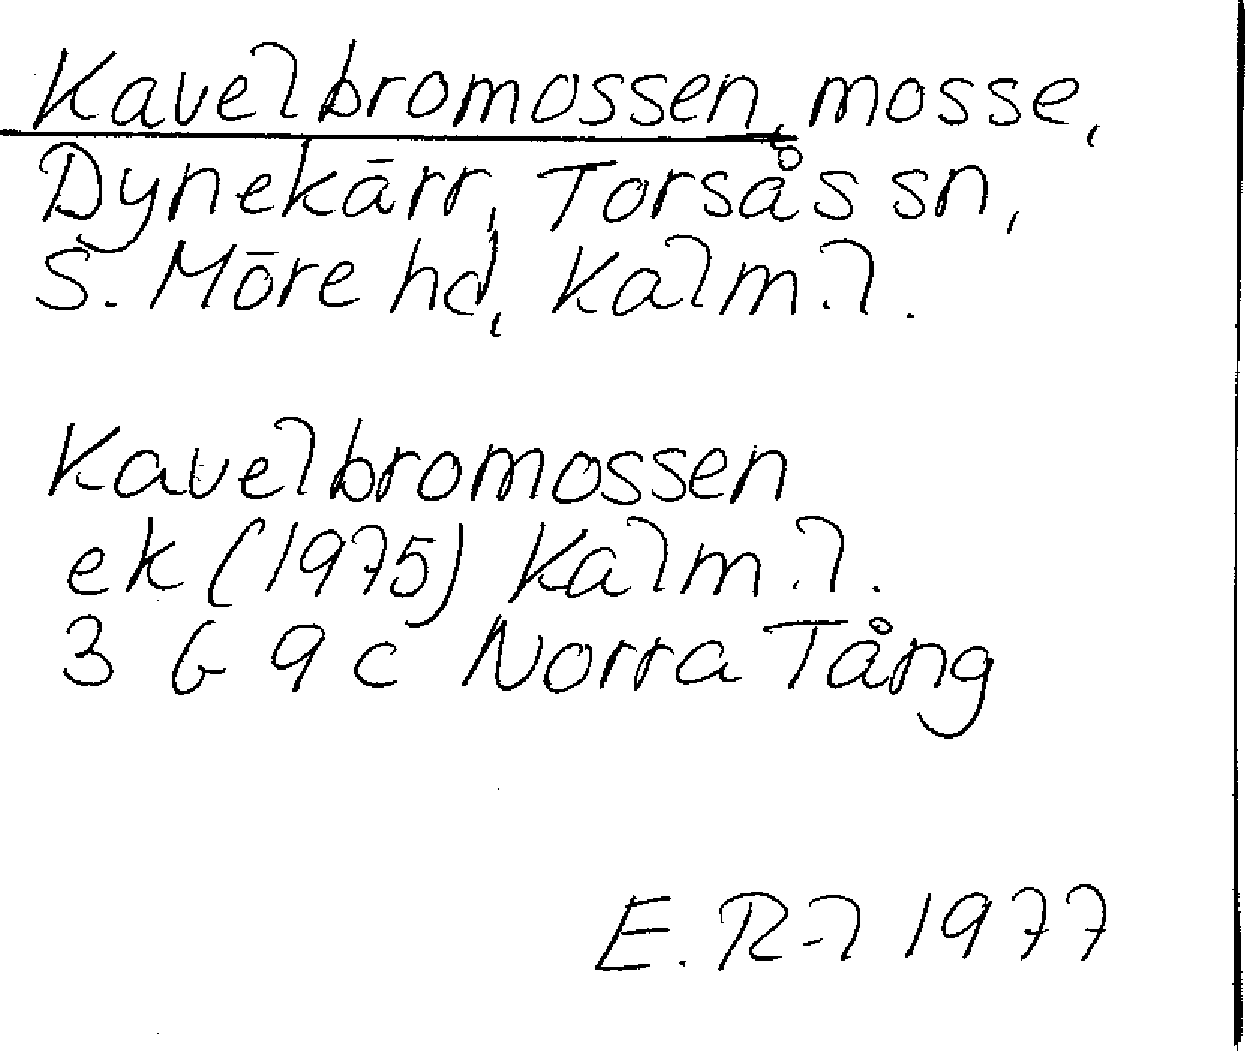 Kavelbromossen, mosse,
Dynekärr, Torsås sn,
S. Möre hd, Kalm. l.
Kavelbromossen
ek (1975) Kalm. l.
3 G 9 c Norra Tång
E. R-l 1977